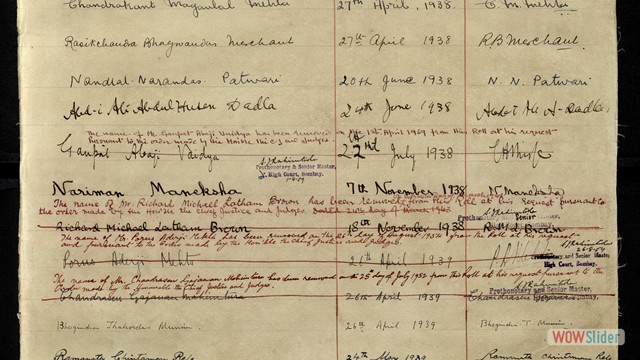 Chandrakant Maganlal Mehta 27th April, 1938. C. M. Mehta
Rasikchandra Bhagwandas Merchant 27th April 1938 R B Merchant
Nandlal Narandas Patwari 20th June 1938 N. N. Patwari
Abd-i Ali Abdul Husen Dadla 24th June 1938 Abd-i Ali A-Dadla
The name of Mr. Ganpat Abaji Vaidya has been removed on 1st April 1959 from this Roll at his request
pursuant to the order made by the Hon'ble the C.J. and Judges.
Ganpat Abaji Vaidya 22nd July 1938
Prothonotary & Senior Master,
High Court, Bombay.
Nariman Maneksha 7th November, 1938 N. Maneksha
The name of Mr. Richard Michael Latham Brown has been removed from this Roll at his request pursuant to
the order made by the Hon'ble the Chief Justice and Judges.
Prothonotary and Senior
Richard Michael Latham Brown 18th November 1938 R. M. L. Brown
The name of Mr. Porus Aderji Mehta has been removed on the of 1954 from this Roll at his request
and pursuant to the order made by the Hon'ble the Chief Justice and Judges.
Prothonotary and Senior Master,
High Court, Bombay.
Porus Aderji Mehta 21st April 1939
The name of Mr. Chandrasen Gajanan has been removed on 25th day of July 1952 from this Roll at his request and pursuant to the
Order made by the Hon'ble the Chief Justice and Judges.
Prothonotary and Senior Master,
Chandrasen Gajanan 26th April 1939 Chandrasen
Bhogindra Thakorelal Munim 26th April 1939 Bhogindra T. Munim
Ramnath Chintaman 24th May 1939 Ramnath Chintaman
WOWSlider